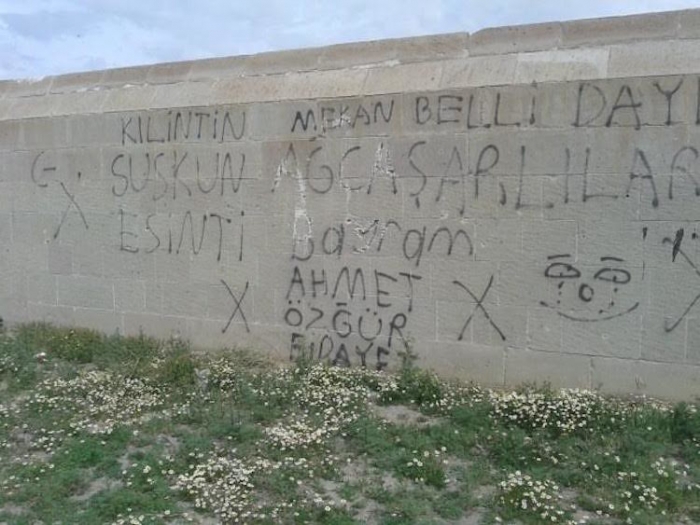 KILINTIN
SUSKUN
ESİNTİ
MEKAN BELLİ DAYI
AĞCAŞARLILAR
Bayram
AHMET
ÖZGÜR
G.
X
X
X